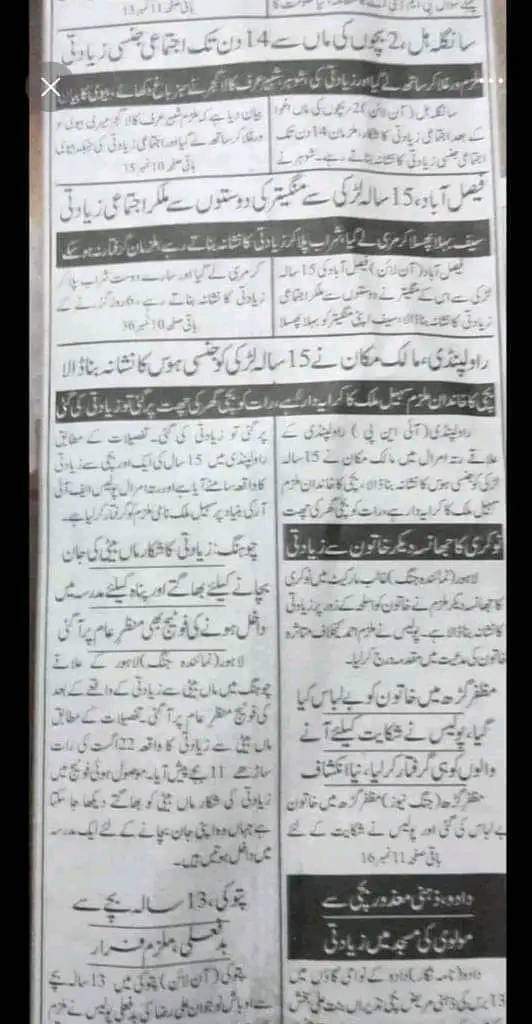 باقی صفحہ 11 نمبر 13
سانگلہ ہل، 2 بچوں کی ماں سے 14 دن تک اجتماعی جنسی زیادتی
سانگلہ ہل (آن لائن) 2 بچوں کی ماں اغوا
کے بعد اجتماعی زیادتی کا شکار، ملزمان 14 دن تک
اجتماعی جنسی زیادتی کا نشانہ بناتے رہے۔ شوہر نے
بیان دیا ہے کہ ملزم شبیر عرف کالا گجر میری بیوی کو
ورغلا کر ساتھ لے گیا اور اجتماعی زیادتی کی جبکہ بیوی
باقی صفحہ 10 نمبر 15
فیصل آباد، 15 سالہ لڑکی سے منگیتر کی دوستوں سے ملکر اجتماعی زیادتی
سیف بہلا پھسلا کر مری لے گیا، شراب پلا کر زیادتی کا نشانہ بناتے رہے، ملزمان گرفتار نہ ہو سکے
فیصل آباد (آن لائن) فیصل آباد کی 15 سالہ
لڑکی سے اس کے منگیتر نے دوستوں سے ملکر اجتماعی
زیادتی کا نشانہ بنا ڈالا، سیف اپنی منگیتر کو بہلا پھسلا
کر مری لے گیا اور سارے دوست شراب پلا کر
زیادتی کا نشانہ بناتے رہے، 6 روز گزرنے کے
باقی صفحہ 10 نمبر 36
راولپنڈی، مالک مکان نے 15 سالہ لڑکی کو جنسی ہوس کا نشانہ بنا ڈالا
بچی کا خاندان ملزم سہیل ملک کا کرایہ دار ہے، رات کو بچی گھر کی چھت پر گئی تو زیادتی کی گئی
راولپنڈی (آئی این پی) راولپنڈی کے
علاقے رتہ امرال میں مالک مکان نے 15 سالہ
لڑکی کو جنسی ہوس کا نشانہ بنا ڈالا، بچی کا خاندان ملزم
سہیل ملک کا کرایہ دار ہے، رات کو بچی گھر کی چھت
پر گئی تو زیادتی کی گئی۔ تفصیلات کے مطابق
راولپنڈی میں 15 سال کی ایک اور بچی سے زیادتی
کا واقعہ سامنے آیا ہے اور رتہ امرال پولیس ایف آئی
آر کی بنیاد پر سہیل ملک نامی ملزم کو گرفتار کر لیا ہے۔
نوکری کا جھانسہ دیکر خاتون سے زیادتی
لاہور (نمائندہ جنگ) غالب مارکیٹ میں نوکری
کا جھانسہ دیکر ملزم نے خاتون کو اسلحہ کے زور پر زیادتی
کا نشانہ بنا ڈالا ہے۔ پولیس نے ملزم احمد کیخلاف متاثرہ
خاتون کی مدعیت میں مقدمہ درج کر لیا۔
مظفر گڑھ میں خاتون کو بے لباس کیا
گیا، پولیس نے شکایت کیلئے آنے
والوں کو ہی گرفتار کر لیا، نیا انکشاف
مظفر گڑھ (جنگ نیوز) مظفر گڑھ میں خاتون
بے لباس کی گئی اور پولیس نے شکایت کے لئے
باقی صفحہ 11 نمبر 16
دادو، ذہنی معذور بچی سے
مولوی کی مسجد میں زیادتی
دادو (نامہ نگار) دادو کے نواحی گاؤں میں
چوہنگ: زیادتی کا شکار ماں بیٹی کی جان
بچانے کیلئے بھاگتے اور پناہ کیلئے مدرسہ میں
داخل ہونے کی فوٹیج بھی منظر عام پر آ گئی
لاہور (نمائندہ جنگ) لاہور کے علاقے
چوہنگ میں ماں بیٹی سے زیادتی کے واقعے کے بعد
کی فوٹیج منظر عام پر آ گئی۔ تفصیلات کے مطابق
ماں بیٹی سے زیادتی کا واقعہ 22 اگست کی رات
ساڑھے 11 بجے پیش آیا۔ موصول ہوئی فوٹیج میں
زیادتی کی شکار ماں بیٹی کو بھاگتے دیکھا جا سکتا
ہے جہاں وہ اپنی جان بچانے کے لئے ایک مدرسہ
میں داخل ہوتیں ہیں۔
پتوکی، 13 سالہ بچے سے
بدفعلی، ملزم فرار
پتوکی (آن لائن) پتوکی میں 13 سالہ بچے
سے اوباش نوجوان علی رضا کی بدفعلی پولیس نے ملزم